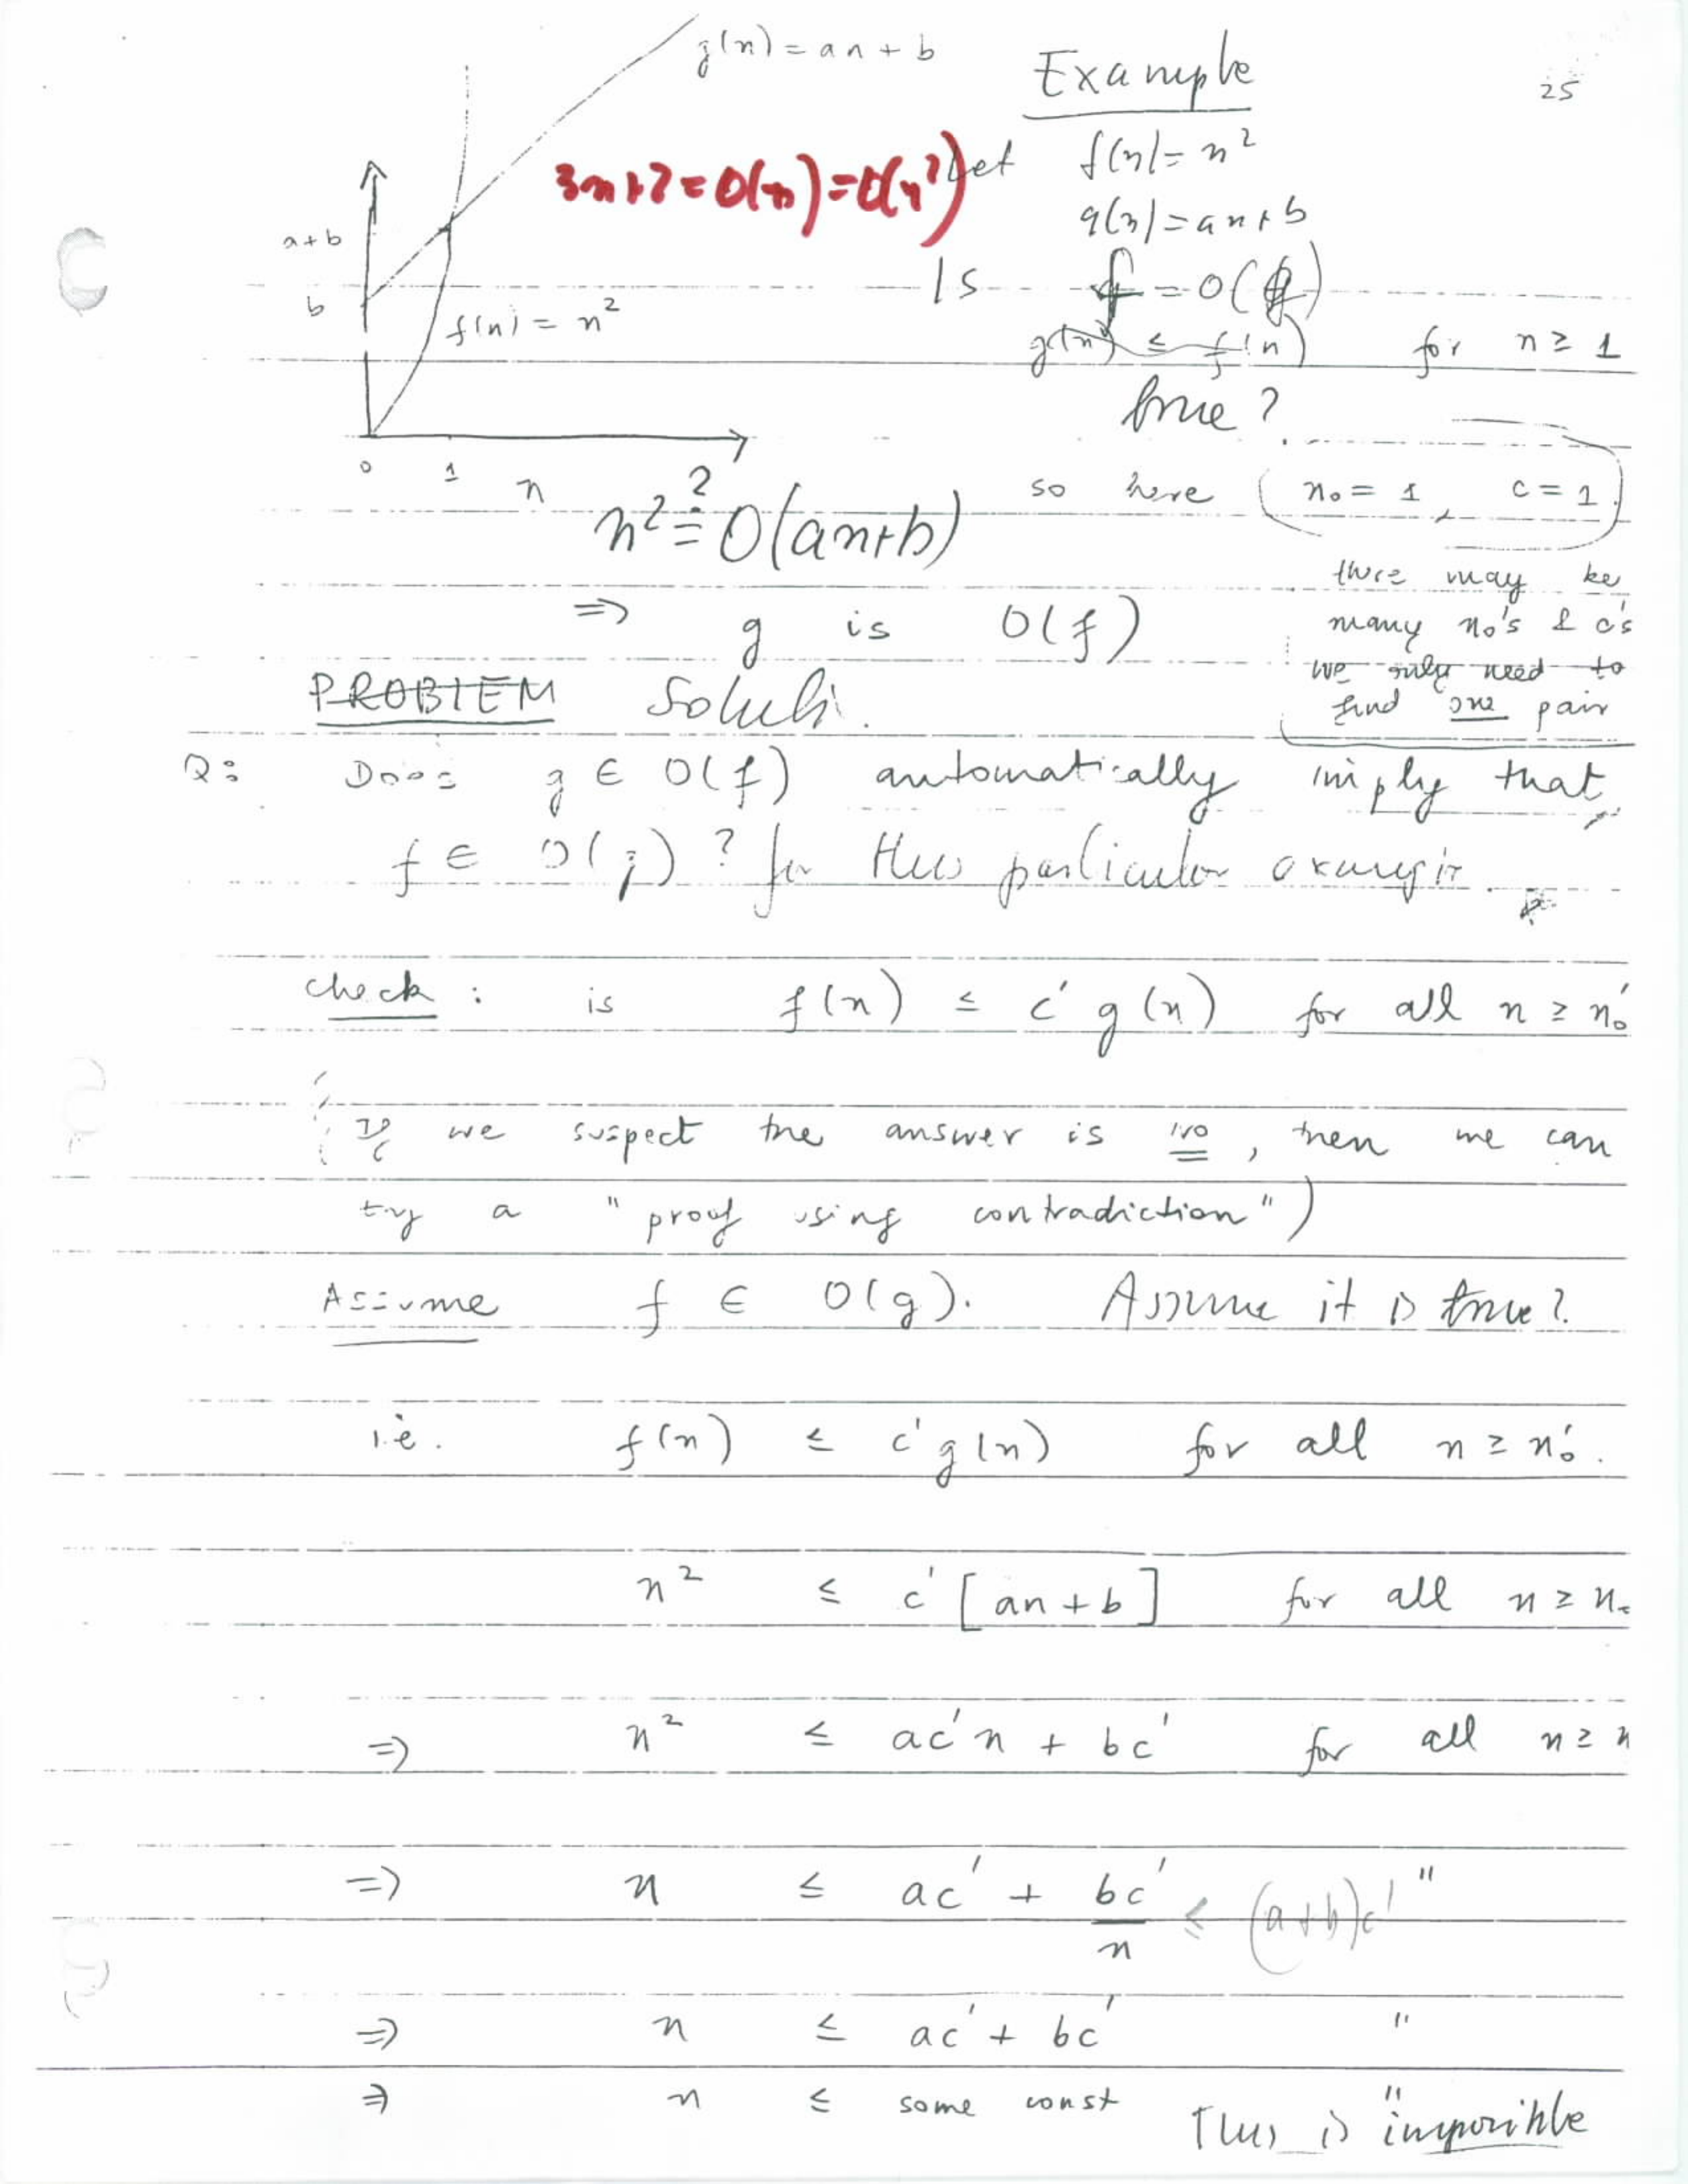 g(n) = an + b
Example
25
3n+2 = O(n) = O(n²)
Let f(n) = n²
g(n) = an + b
a+b
b
Is f = O(g)
f(n) = n²
g(n) ≤ f(n) for n ≥ 1
true?
0 1 n
so here (n₀ = 1, c = 1)
n² ≟ O(an+b)
there may be
many n₀'s & c's
we only need to
find one pair
⇒ g is O(f)
PROBLEM
Q: Does g ∈ O(f) automatically imply that
f ∈ O(g)? for this particular
check: is f(n) ≤ c' g(n) for all n ≥ n₀'
(If we suspect the answer is no, then we can
try a "proof using contradiction")
Assume f ∈ O(g). Assume it is true?
i.e. f(n) ≤ c' g(n) for all n ≥ n₀'.
n² ≤ c' [an + b] for all n ≥ n₀
⇒ n² ≤ ac'n + bc' for all n ≥ n
⇒ n ≤ ac' + bc'/n ≤ (a+b)c' "
⇒ n ≤ ac' + bc' "
⇒ n ≤ some const "
This is impossible